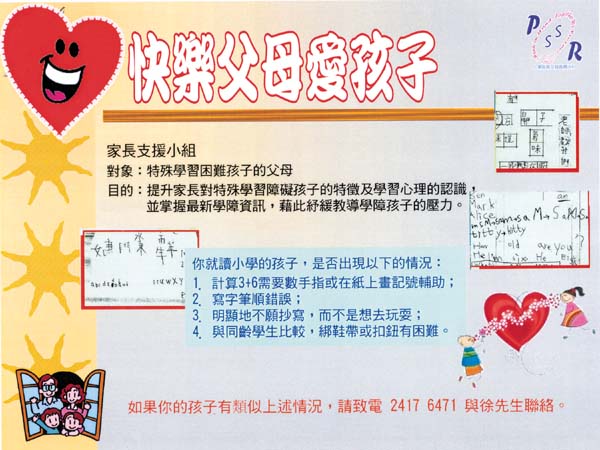 快樂父母愛孩子
P S S R
家長支援小組
對象：特殊學習困難孩子的父母
目的：提升家長對特殊學習障礙孩子的特徵及學習心理的認識，
並掌握最新學障資訊，藉此紓緩教導學障孩子的壓力。
你就讀小學的孩子，是否出現以下的情況：
1. 計算3+6需要數手指或在紙上畫記號輔助；
2. 寫字筆順錯誤；
3. 明顯地不願抄寫，而不是想去玩耍；
4. 與同齡學生比較，綁鞋帶或扣鈕有困難。
old are you?
如果你的孩子有類似上述情況，請致電 2417 6471 與徐先生聯絡。